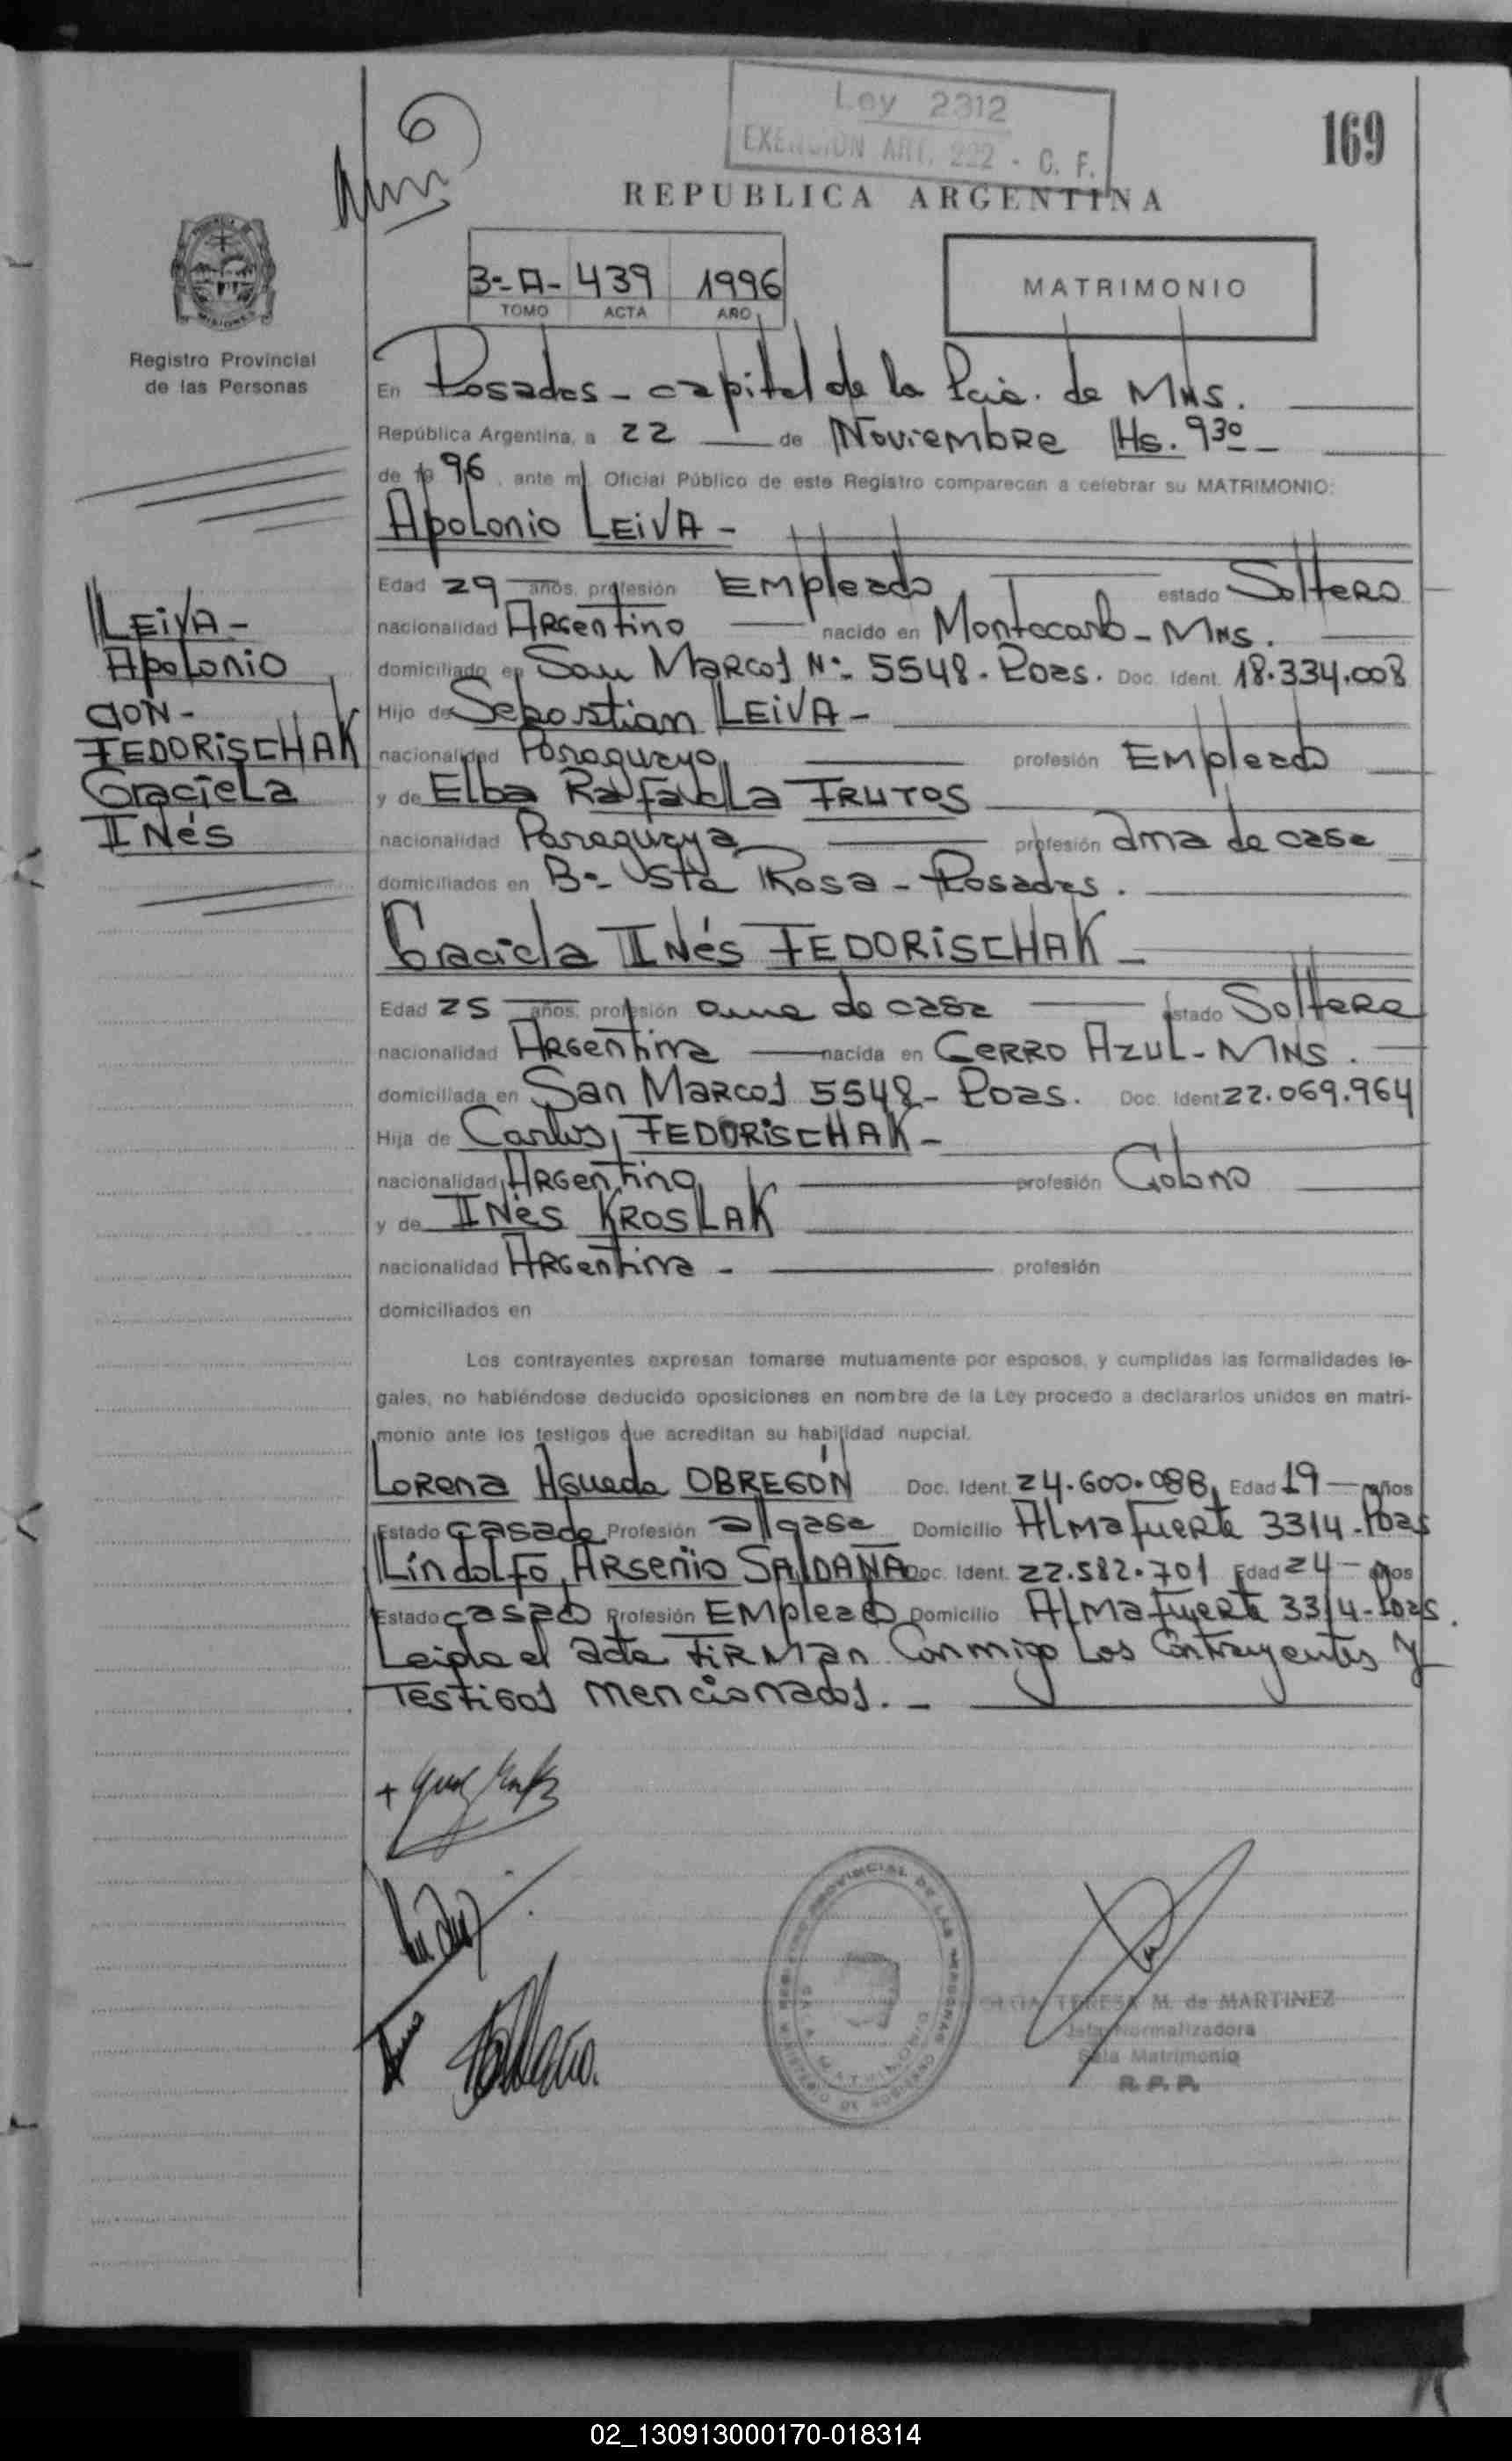 Ley 2312
EXENCION ART. 222 - C. F.
169
REPUBLICA ARGENTINA
3-A- 439 1996
TOMO ACTA AÑO
MATRIMONIO
Registro Provincial
de las Personas
MISIONES
En Posadas - capital de la Pcia. de MNS.
República Argentina, a 22 de Noviembre Hs. 9 30
de 19 96, ante mí, Oficial Público de este Registro comparecen a celebrar su MATRIMONIO:
Apolonio LEIVA -
Edad 29 años, profesión Empleado estado Soltero
nacionalidad Argentino nacido en Montecarlo - MNS.
domiciliado en San Marcos Nº 5548 - Poas. Doc. Ident. 18.334.008
Hijo de Sebastian LEIVA -
nacionalidad Paraguayo profesión Empleado
y de Elba Rafaela FRUTOS
nacionalidad Paraguaya profesión ama de casa
domiciliados en Bº Sta Rosa - Posadas.
LEIVA -
Apolonio
CON -
FEDORISCHAK
Graciela
INés
Graciela INés FEDORISCHAK -
Edad 25 años, profesión ama de casa estado Soltera
nacionalidad Argentina nacida en Cerro Azul - MNS.
domiciliada en San Marcos 5548 - Poas. Doc. Ident. 22.069.964
Hija de Carlos FEDORISCHAK -
nacionalidad Argentino profesión Colono
y de INés KROSLAK
nacionalidad Argentina - profesión
domiciliados en
Los contrayentes expresan tomarse mutuamente por esposos, y cumplidas las formalidades le-
gales, no habiéndose deducido oposiciones en nombre de la Ley procedo a declararlos unidos en matri-
monio ante los testigos que acreditan su habilidad nupcial.
Lorena Agueda OBREGÓN Doc. Ident. 24.600.088 Edad 19 años
Estado casada Profesión a/casa Domicilio Almafuerte 3314 - Poas
Lindolfo Arsenio SALDAÑA Doc. Ident. 22.582.701 Edad 24 años
Estado casado Profesión Empleado Domicilio Almafuerte 3314 - Poas.
Leida el acta firman conmigo los contrayentes y
Testigos mencionados. -
REGISTRO PROVINCIAL DE LAS PERSONAS
MINISTERIO DE GOBIERNO
SALA MATRIMONIO
TERESA M. de MARTINEZ
Jefa Normalizadora
Sala Matrimonio
R. P. P.
02_130913000170-018314